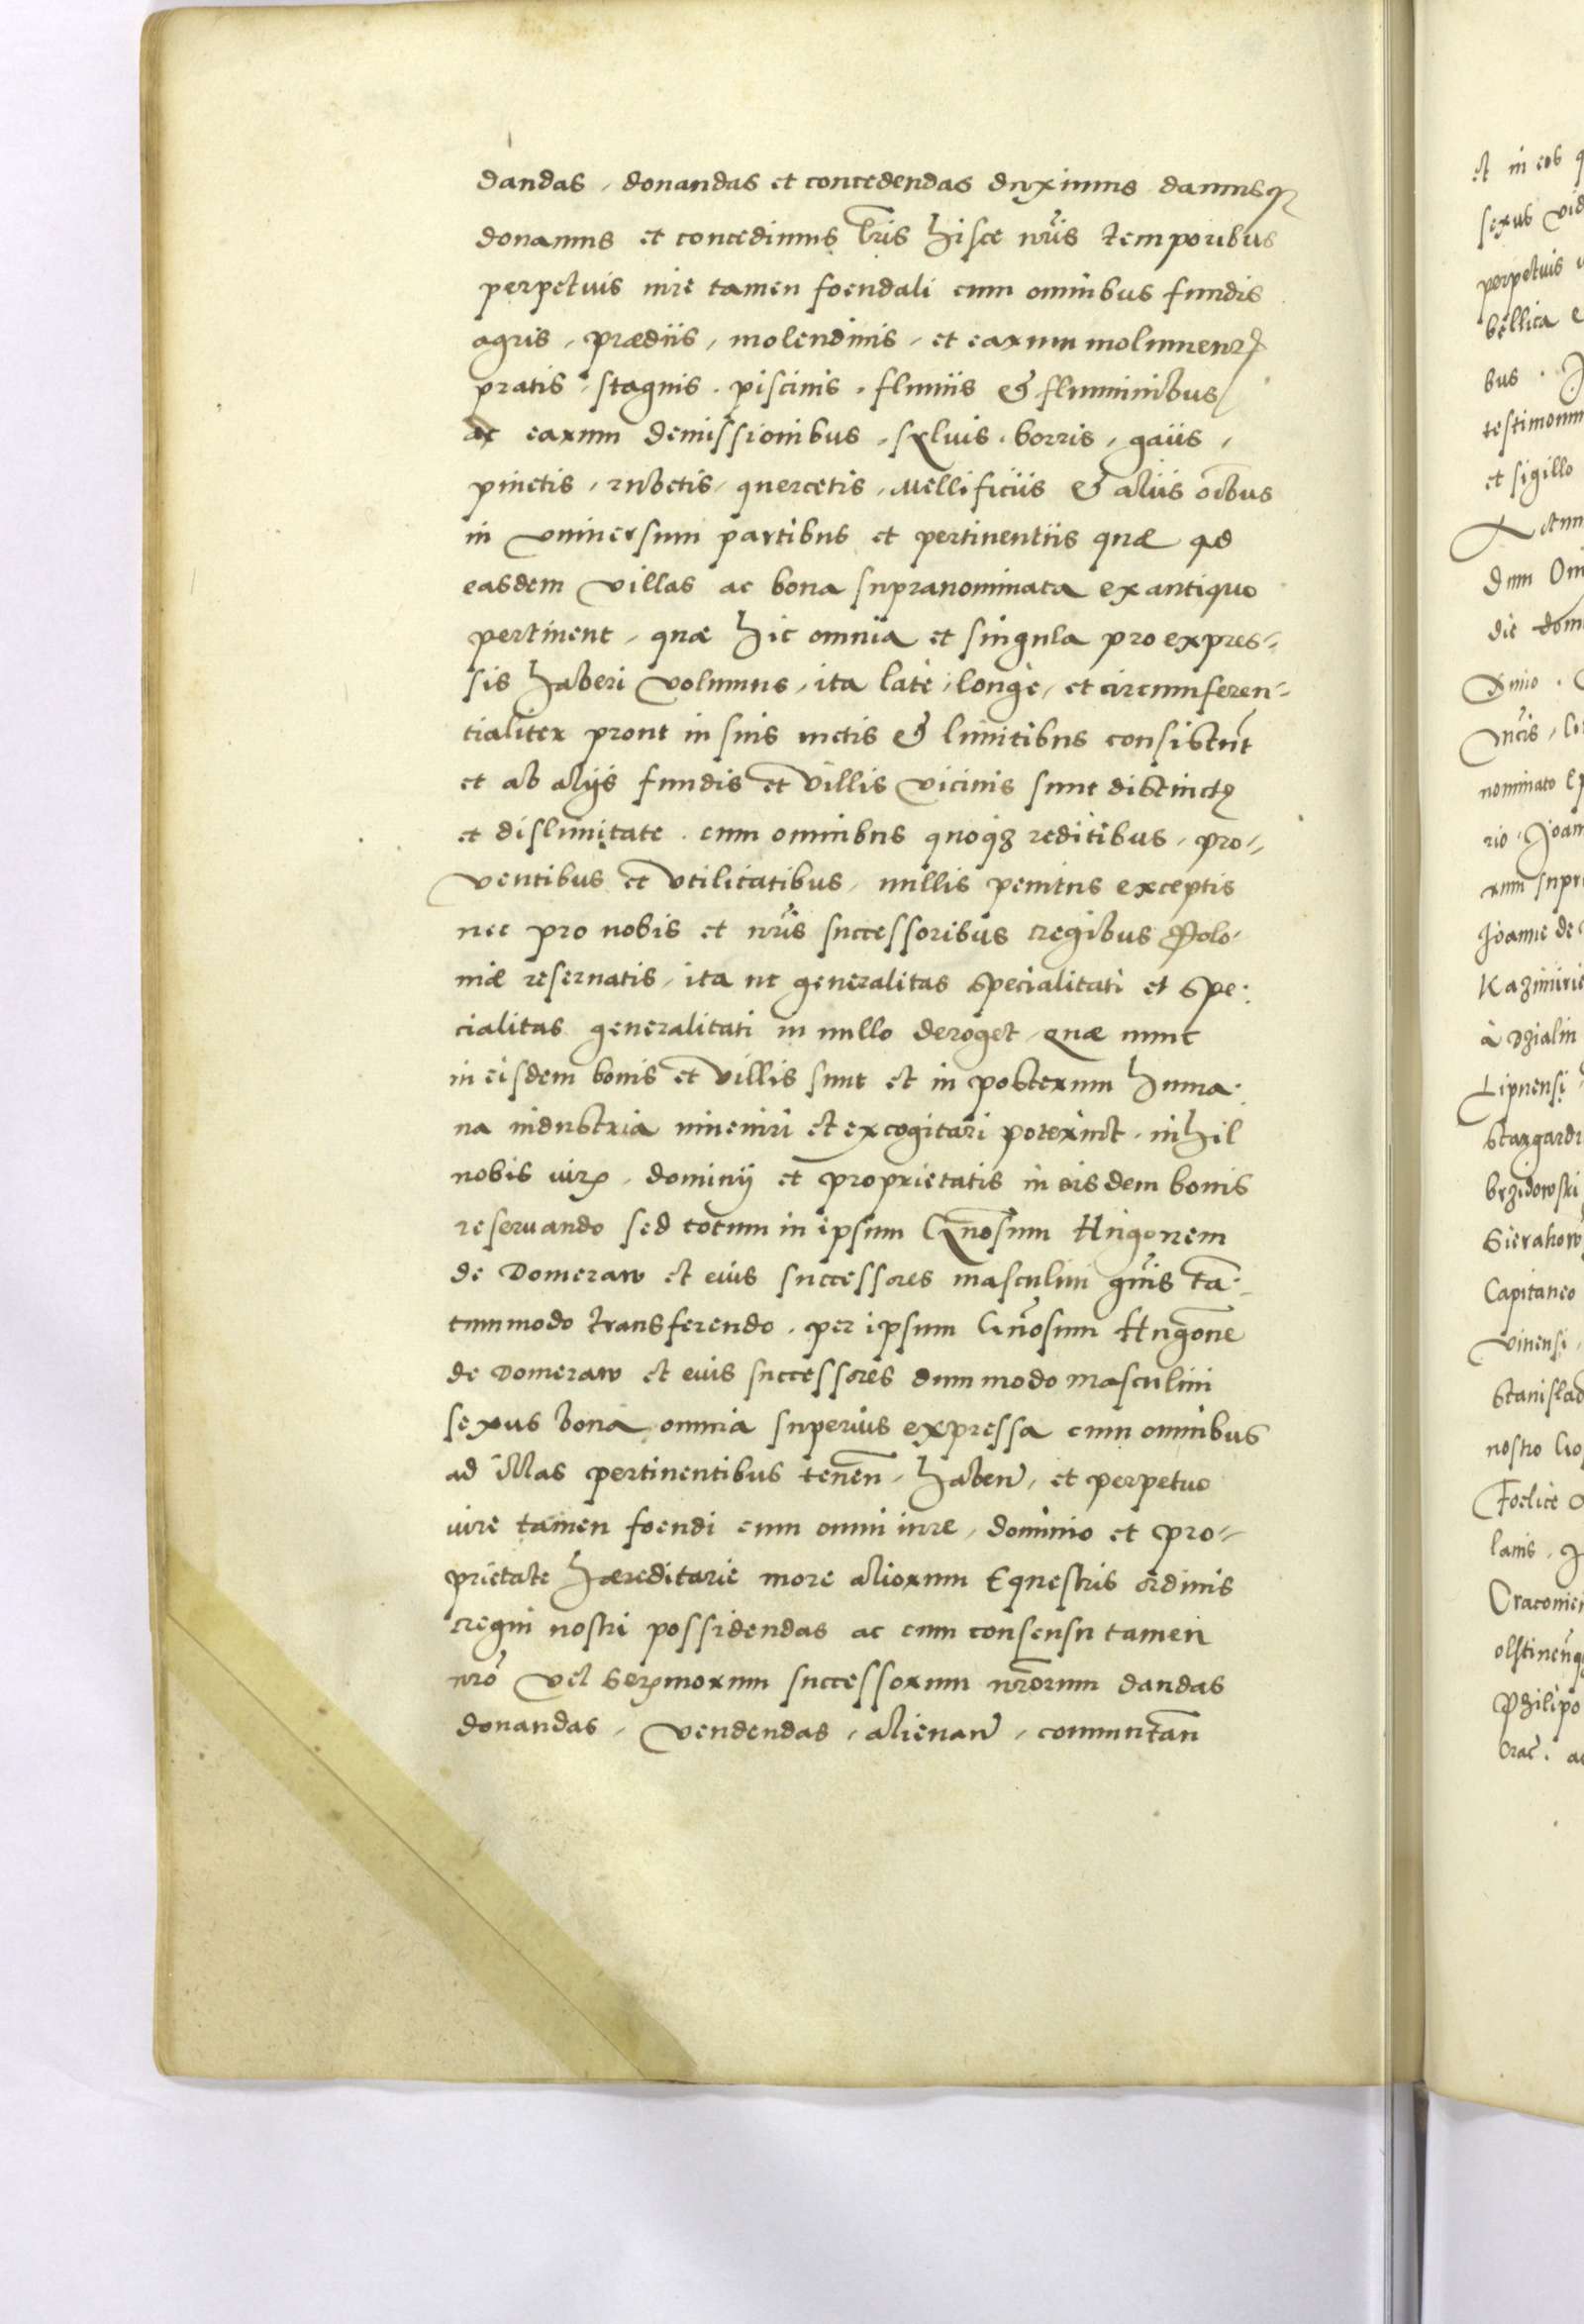 dandas, donandas et concedendas duximus damusq
donamus et concedimus lris hisce nris temporibus
perpetuis iure tamen foendali cum omnibus fundis
agris, prædiis, molendinis, et earum molumentis
pratis, stagnis. piscinis. fluuiis & fluminibus
ac earum demissionibus. syluis. borris, gaiis,
pinetis, rubetis, quercetis, mellificiis & aliis oibus
in vniuersum partibus et pertinentiis quæ ad
easdem villas ac bona supranominata ex antiquo
pertinent, quæ hic omnia et singula pro expres-
sis haberi volumus, ita late, longe, et circumferen-
tialiter prout in suis metis & limitibus consistunt
et ab alijs fundis et villis vicinis sunt distinctę
et dislimitate. cum omnibus quoqз reditibus, pro-
ventibus et vtilitatibus, nullis penitus exceptis
nec pro nobis et nris successoribus regibus Polo-
niæ reseruatis, ita ut generalitas specialitati et spe-
cialitas generalitati in nullo deroget, quæ nunc
in eisdem bonis et villis sunt et in posterum huma-
na industria inueniri et excogitari poterint. nihil
nobis iuris, dominij et proprietatis in eisdem bonis
reseruando sed totum in ipsum Gnosum Hugonem
de Domeraw et eius successores masculini gnis ta-
tummodo transferendo. per ipsum Gnosum Hugone
de Domeraw et eius successores dummodo masculini
sexus bona omnia superius expressa cum omnibus
ad illas pertinentibus tenen, haben, et perpetuo
iure tamen foendi cum omni iure, dominio et pro-
prietate hæreditarie more aliorum Equestris ordinis
regni nostri possidendas ac cum consensu tamen
nro vel Sermorum successorum nrorum dandas
donandas, vendendas, alienan, commutan